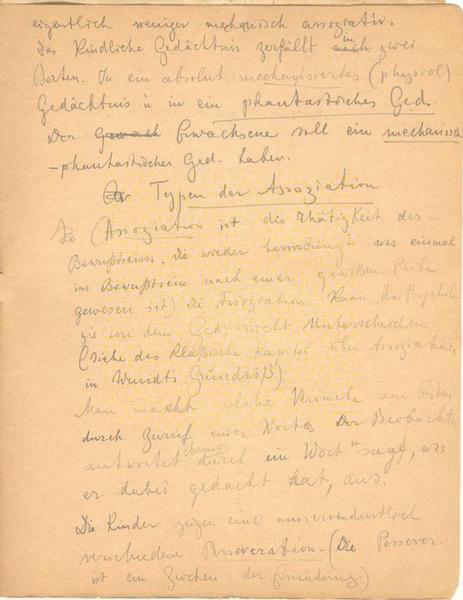 eigentlich weniger mechanisch assoziativ.
Das Kindliche Gedächtnis zerfällt in zwei
Sorten. In ein absolut mechanisiertes (physiol)
Gedächtnis u in ein phantastisches Ged.
Der Erwachsene soll ein mechanisch
-phantastisches Ged. haben.
Typen der Assoziation
(Assoziation ist die Thätigkeit des
Bewußtseins, die wieder hervorbringt was einmal
im Bewußtsein nach einer gewißen Reihe
gewesen ist) Die Assoziation kann die Psychologie
von dem Ged. nicht Unterscheiden
(siehe das klaßische Kapitel über Assoziationen
in Wundts Grundriß)
Man macht solche Versuche am besten
durch Zuruf eines Wortes Der Beobachtete
antwortet ebenso durch ein Wort u sagt, was
er dabei gedacht hat, aus.
Die Kinder zeigen eine ausserordentlich
verschiedene Perseveration. (Die Persever.
ist ein Zeichen der Ermüdung.)